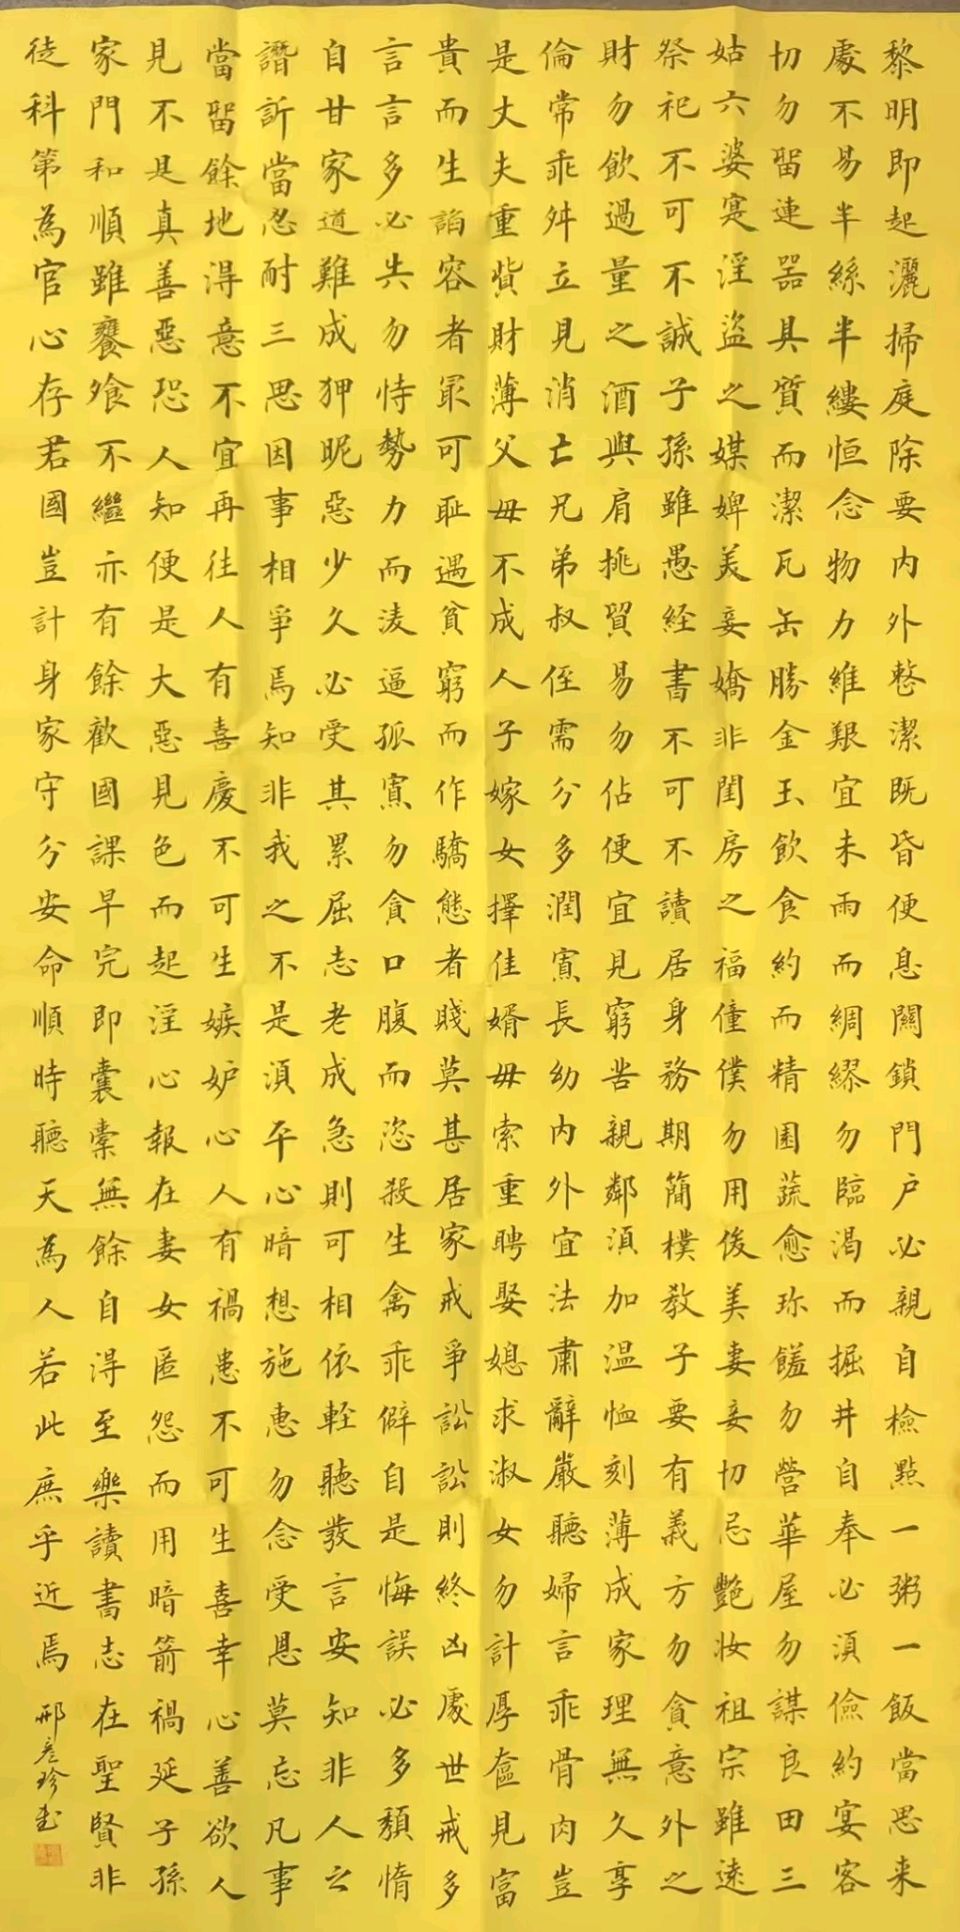 黎明即起灑掃庭除要内外整潔既昏便息關鎖門户必親自檢點一粥一飯當思来
處不易半絲半縷恒念物力維艱宜未雨而綢繆勿臨渴而掘井自奉必須儉約宴客
切勿留連器具質而潔瓦缶勝金玉飲食約而精園蔬愈珍饈勿營華屋勿謀良田三
姑六婆寔淫盗之媒婢美妾嬌非閨房之福僮僕勿用俊美妻妾切忌艷妝祖宗雖遠
祭祀不可不誠子孫雖愚経書不可不讀居身務期簡樸教子要有義方勿貪意外之
財勿飲過量之酒與肩挑貿易勿佔便宜見窮苦親鄰須加温恤刻薄成家理無久享
倫常乖舛立見消亡兄弟叔侄需分多潤寡長幼内外宜法肅辭嚴聽婦言乖骨肉豈
是丈夫重貲財薄父母不成人子嫁女擇佳婿毋索重聘娶媳求淑女勿計厚奩見富
貴而生諂容者最可耻遇貧窮而作驕態者賤莫甚居家戒爭訟訟則終凶處世戒多
言言多必失勿恃勢力而淩逼孤寡勿貪口腹而恣殺生禽乖僻自是悔誤必多頹惰
自甘家道難成狎昵惡少久必受其累屈志老成急則可相依輕聽發言安知非人之
譖訴當忍耐三思因事相爭焉知非我之不是須平心暗想施惠勿念受恩莫忘凡事
當留餘地得意不宜再往人有喜慶不可生嫉妒心人有禍患不可生喜幸心善欲人
見不是真善惡恐人知便是大惡見色而起淫心報在妻女匿怨而用暗箭禍延子孫
家門和順雖饔飧不繼亦有餘歡國課早完即囊橐無餘自得至樂讀書志在聖賢非
徒科第為官心存君國豈計身家守分安命順時聽天為人若此庶乎近焉 邢彦珍書